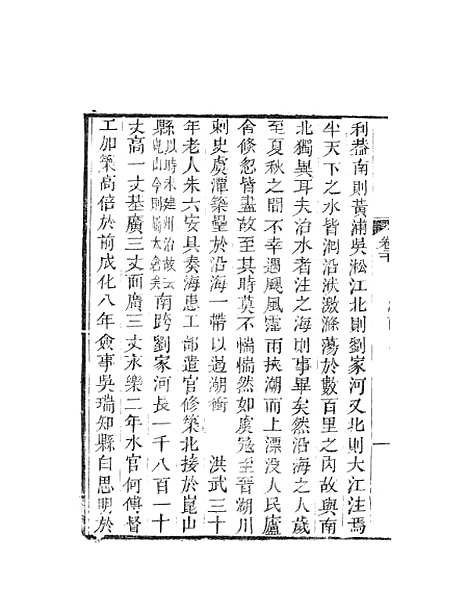 利葢南則黃浦吳淞江北則劉家河又北則大江注焉
半天下之水皆洄沿洑激滌蕩於數百里之内故與南
北獨異耳夫治水者注之海則事畢矣然沿海之人歲
至夏秋之間不幸遇颶風霪雨挾潮而上漂没人民廬
舍修忽皆盡故至其時莫不惴惴然如虞寇至晉湖川
刺史虞潭築壘於沿海一帶以遏湖衝 洪武三十
年老人朱六安具奏海患工部遣官修築北接於崑山
縣以時未建州治故云崑山今則屬太倉矣南跨劉家河長一千八百一十
丈高一丈基廣三丈面廣二丈永樂二年水官何傅督
工加築高倍於前成化八年僉事吳瑞知縣白思明於
卷十